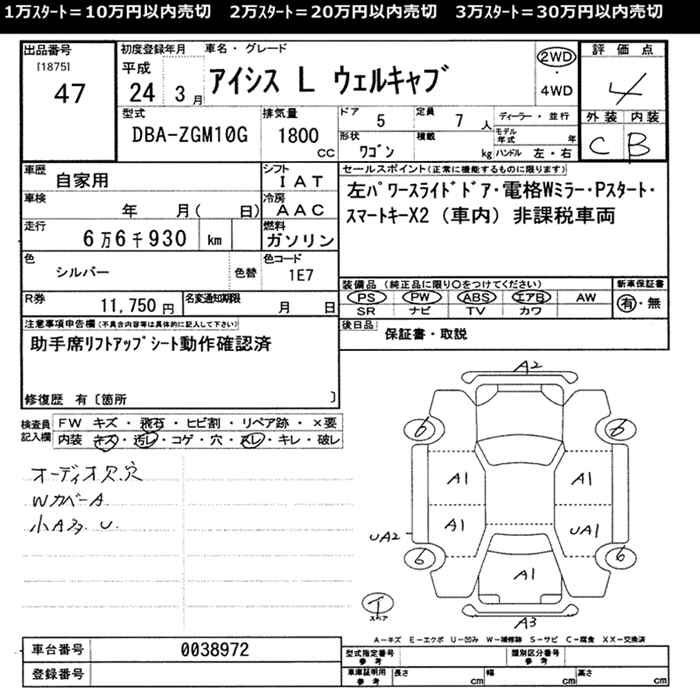 1万ｽﾀｰﾄ＝10万円以内売切　2万ｽﾀｰﾄ＝20万円以内売切　3万ｽﾀｰﾄ＝30万円以内売切
出品番号
[1875]
47
初度登録年月
平成
24 3月
車名・グレード
アイシス L ウェルキャブ
2WD
・
4WD
評価点
4
外装 内装
C B
型式
DBA-ZGM10G
排気量
1800
cc
ドア 5
定員 7 人
ディーラー・並行
形状 ﾜｺﾞﾝ
積載 kg
モデル年式 年
ハンドル 左・右
車歴
自家用
シフト
IAT
車検
年 月( 日)
冷房
AAC
走行
6万6千930 km
燃料
ガソリン
色
シルバー
色替
色コード
1E7
R券
11,750 円
名変通知期限
月 日
セールスポイント(正常に機能するものに限ります)
左ﾊﾟﾜｰｽﾗｲﾄﾞﾄﾞｱ・電格Wミラー・Pスタート・
スマートキーX2（車内）非課税車両
装備品（純正品に限り○をつけてください）
PS PW ABS エアB AW
SR ナビ TV カワ
新車保証書
有・無
後日品
保証書・取説
注意事項申告欄(不具合内容等は具体的に記入して下さい)
助手席ﾘﾌﾄｱｯﾌﾟｼｰﾄ動作確認済
修復歴 有〔箇所 〕
検査員
記入欄
FW キズ・飛石・ヒビ割・リペア跡・×要
内装 キズ・汚レ・コゲ・穴・スレ・キレ・破レ
オーディオ欠.穴
WカバーA
小A多 U.
A2
6 6
A1 A1
A1 UA1
UA2
6 6
A1
A3
スペア
A－キズ E－エクボ U－凹み W－補修跡 S－サビ C－腐食 XX－交換済
車台番号
0038972
登録番号
型式指定番号
参考
類別区分番号
参考
車庫証明用
参考
長さ cm
幅 cm
高さ cm